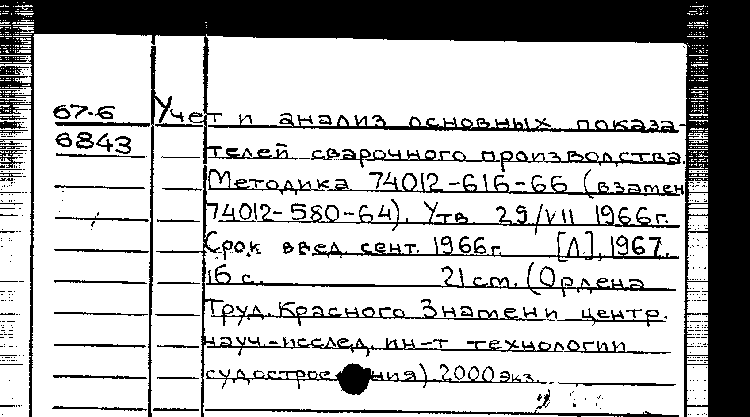 67-6 Учет и анализ основных показа-
6843 телей сварочного производства.
Методика 74012-616-66 (взамен
74012-580-64). Утв. 29/VII 1966г.
Срок введ. сент. 1966г. [Л], 1967.
16 с. 21 см. (Ордена
Труд. Красного Знамени центр.
науч-исслед. ин-т технологии
судостроения) 2000 экз.